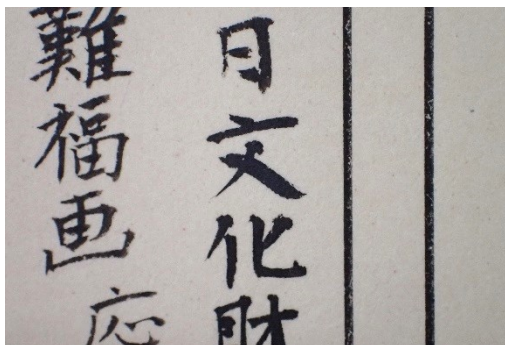 日文化財
難福画応